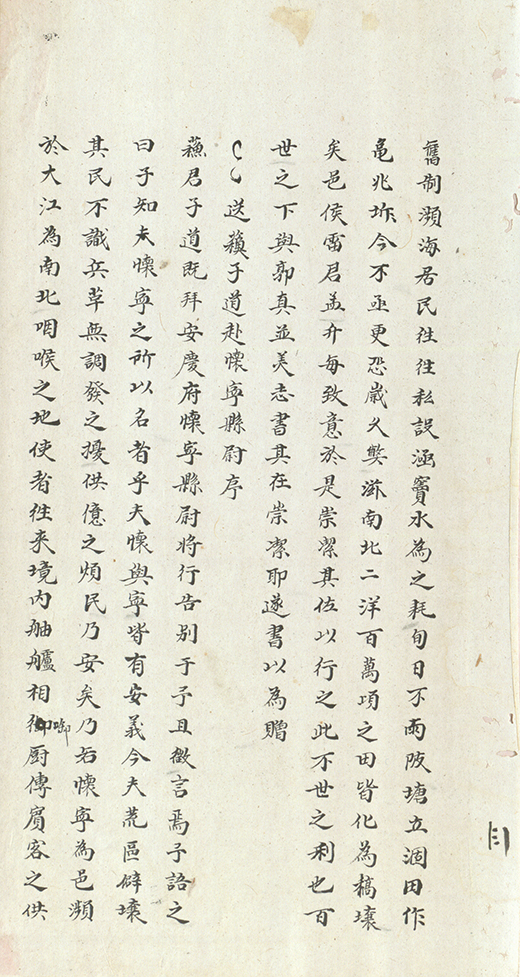 舊制瀕海居民徃徃私設涵竇水為之耗旬日不雨陂塘立涸田作
龜兆坼今不亟更恐歲久弊滋南北二洋百萬項之田皆化為槁壤
矣邑侯雷君孟升每致意於是崇潔其佐以行之此不世之利也百
世之下與郭真並美志書其在崇潔耶遂書以為贈
送蘓子道赴懷寧縣尉序
蘓君子道既拜安慶府懷寧縣尉將行告别于予且徵言焉予語之
曰子知夫懷寧之所以名者乎夫懷與寧皆有安義今夫荒區僻壤
其民不識兵草無調發之擾供億之煩民乃安矣乃若懷寧為邑瀕
於大江為南北咽喉之地使者徃来境内舳艫相啣厨傳賔客之供